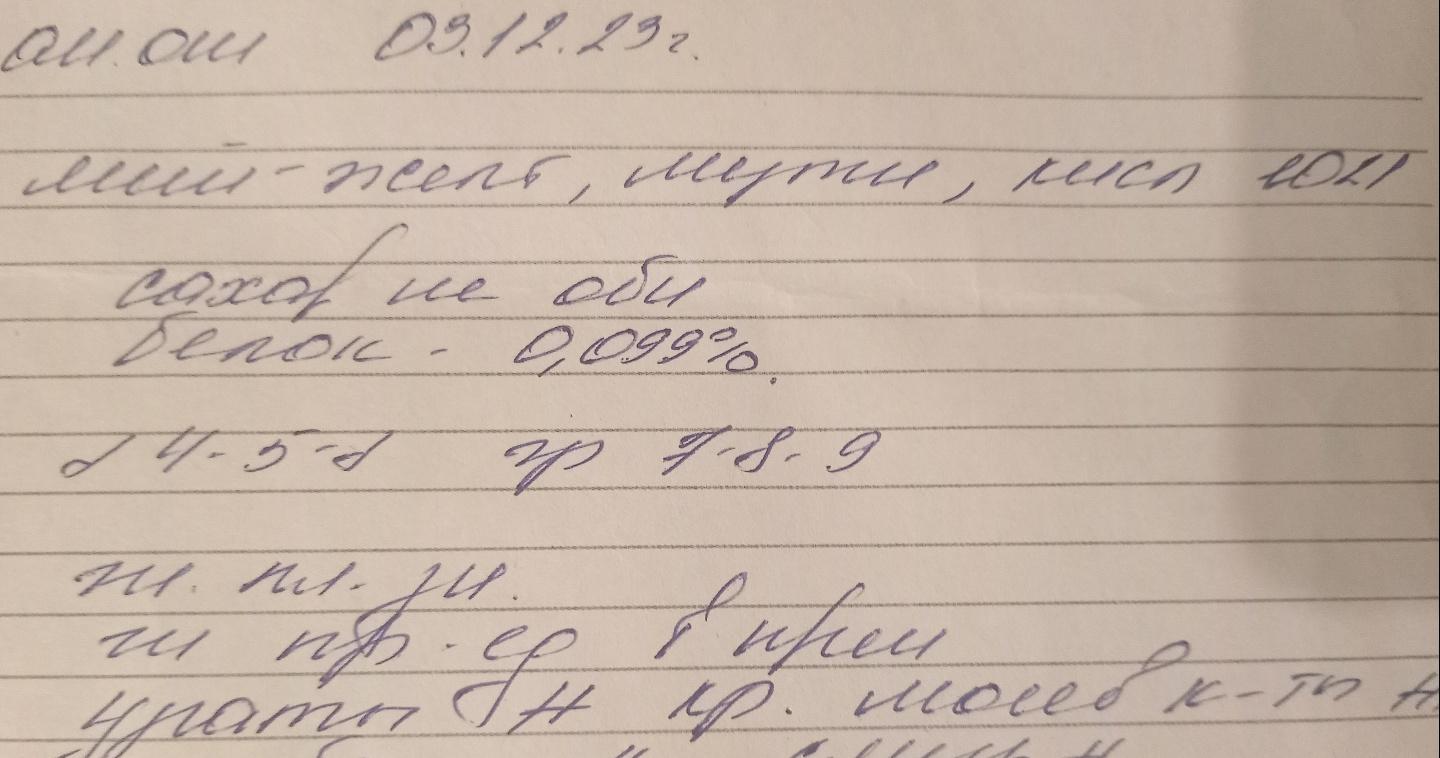 ан. от 03.12.23г.
мий-желт, мутн, кисл 1021
сахар не обн
белок - 0,099%.
L 4-5-6 эр 7-8-9
эп. пл. зн.
эп пр - ед в преп
ураты кр. мочев к-ты